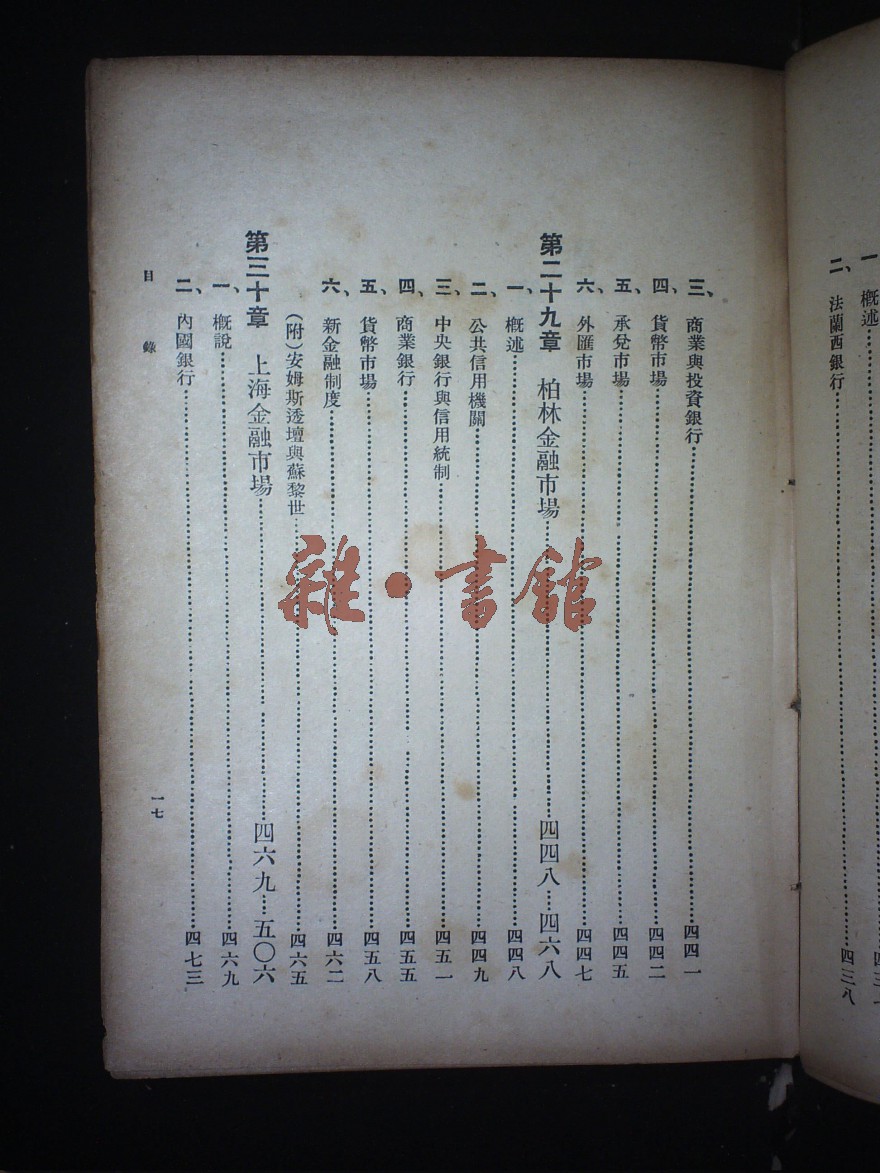 一、概述……四三一
二、法蘭西銀行……四三八
三、商業與投資銀行……四四一
四、貨幣市場……四四二
五、承兌市場……四四五
六、外匯市場……四四七
第二十九章 柏林金融市場……四四八…四六八
一、概述……四四八
二、公共信用機關……四四九
三、中央銀行與信用統制……四五一
四、商業銀行……四五五
五、貨幣市場……四五八
六、新金融制度……四六二
(附)安姆斯透壇與蘇黎世……四六五
第三十章 上海金融市場……四六九…五〇六
一、概說……四六九
二、內國銀行……四七三
目錄 一七
雜·書館